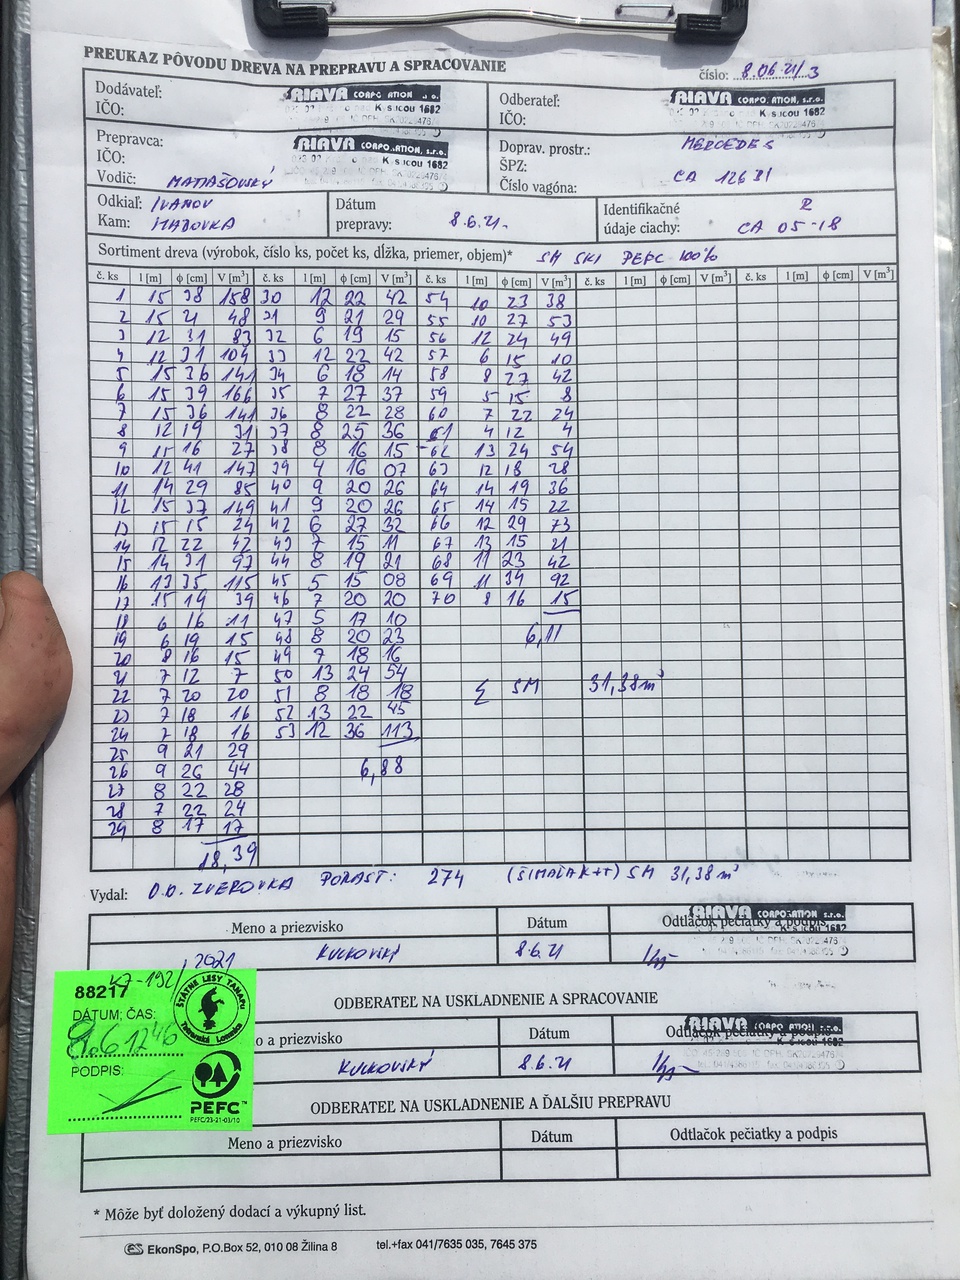 PREUKAZ PÔVODU DREVA NA PREPRAVU A SPRACOVANIE
číslo: 8.06.21/3
Dodávateľ: RIAVA CORPORATION, s.r.o.
IČO:
Odberateľ: RIAVA CORPORATION, s.r.o.
IČO:
Prepravca: RIAVA CORPORATION, s.r.o.
IČO:
Vodič: MATIAŠOVSKÝ
Doprav. prostr.: MERCEDES
ŠPZ:
Číslo vagóna: CA 126 BI
Odkiaľ: IVANOV
Kam: HABOVKA
Dátum
prepravy: 8.6.21.
Identifikačné
údaje ciachy: CA 05-18
Sortiment dreva (výrobok, číslo ks, počet ks, dĺžka, priemer, objem)* SM SKI PEFC 100%
č. ks l [m] ϕ [cm] V [m³] č. ks l [m] ϕ [cm] V [m³] č. ks l [m] ϕ [cm] V [m³] č. ks l [m] ϕ [cm] V [m³] č. ks l [m] ϕ [cm] V [m³]
1 15 38 158 30 12 22 42 54 10 23 38
2 15 21 48 31 9 21 29 55 10 27 53
3 12 31 83 32 6 19 15 56 12 24 49
4 12 31 104 33 12 22 42 57 6 15 10
5 15 36 141 34 6 18 14 58 8 27 42
6 15 39 166 35 7 27 37 59 5 15 8
7 15 36 141 36 8 22 28 60 7 22 24
8 12 19 31 37 8 25 36 61 4 12 4
9 15 16 27 38 8 16 15 62 13 24 54
10 12 41 147 39 4 16 07 63 12 18 28
11 14 29 85 40 9 20 26 64 14 19 36
12 15 37 149 41 9 20 26 65 14 15 22
13 15 15 24 42 6 27 32 66 12 29 73
14 12 22 42 43 7 15 11 67 13 15 21
15 14 31 97 44 8 19 21 68 11 23 42
16 13 35 115 45 5 15 08 69 11 34 92
17 15 19 39 46 7 20 20 70 8 16 15
18 6 16 11 47 5 17 10
19 6 19 15 48 8 20 23 6,11
20 8 16 15 49 7 18 16
21 7 12 7 50 13 24 54
22 7 20 20 51 8 18 18 Σ SM 31,38m³
23 7 18 16 52 13 22 45
24 7 18 16 53 12 36 113
25 9 21 29
26 9 26 44 6,88
27 8 22 28
28 7 22 24
29 8 17 17
18,39
Vydal: O.O. ZVEROVKA PORAST: 274 (ŠIMAĽAK++) SM 31,38 m³
Meno a priezvisko Dátum Odtlačok pečiatky a podpis
RIAVA CORPORATION s.r.o.
2021 KULKOVSKÝ 8.6.21
ODBERATEĽ NA USKLADNENIE A SPRACOVANIE
no a priezvisko Dátum Odtlačok pečiatky a podpis
RIAVA CORPORATION s.r.o.
KULKOVSKÝ 8.6.21
88217
ŠTÁTNE LESY TANAPU
Tatranská Lomnica
DÁTUM; ČAS:
8.6 12 40
PODPIS:
PEFC™
PEFC/23-21-03/10
ODBERATEĽ NA USKLADNENIE A ĎALŠIU PREPRAVU
Meno a priezvisko Dátum Odtlačok pečiatky a podpis
* Môže byť doložený dodací a výkupný list.
EkonSpo, P.O.Box 52, 010 08 Žilina 8 tel.+fax 041/7635 035, 7645 375